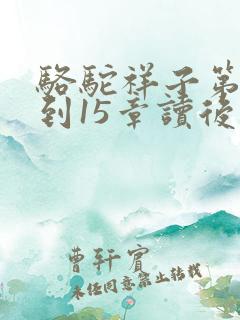 駱駝祥子第
到15章讀後
曹軒賓
未经同意禁止转载